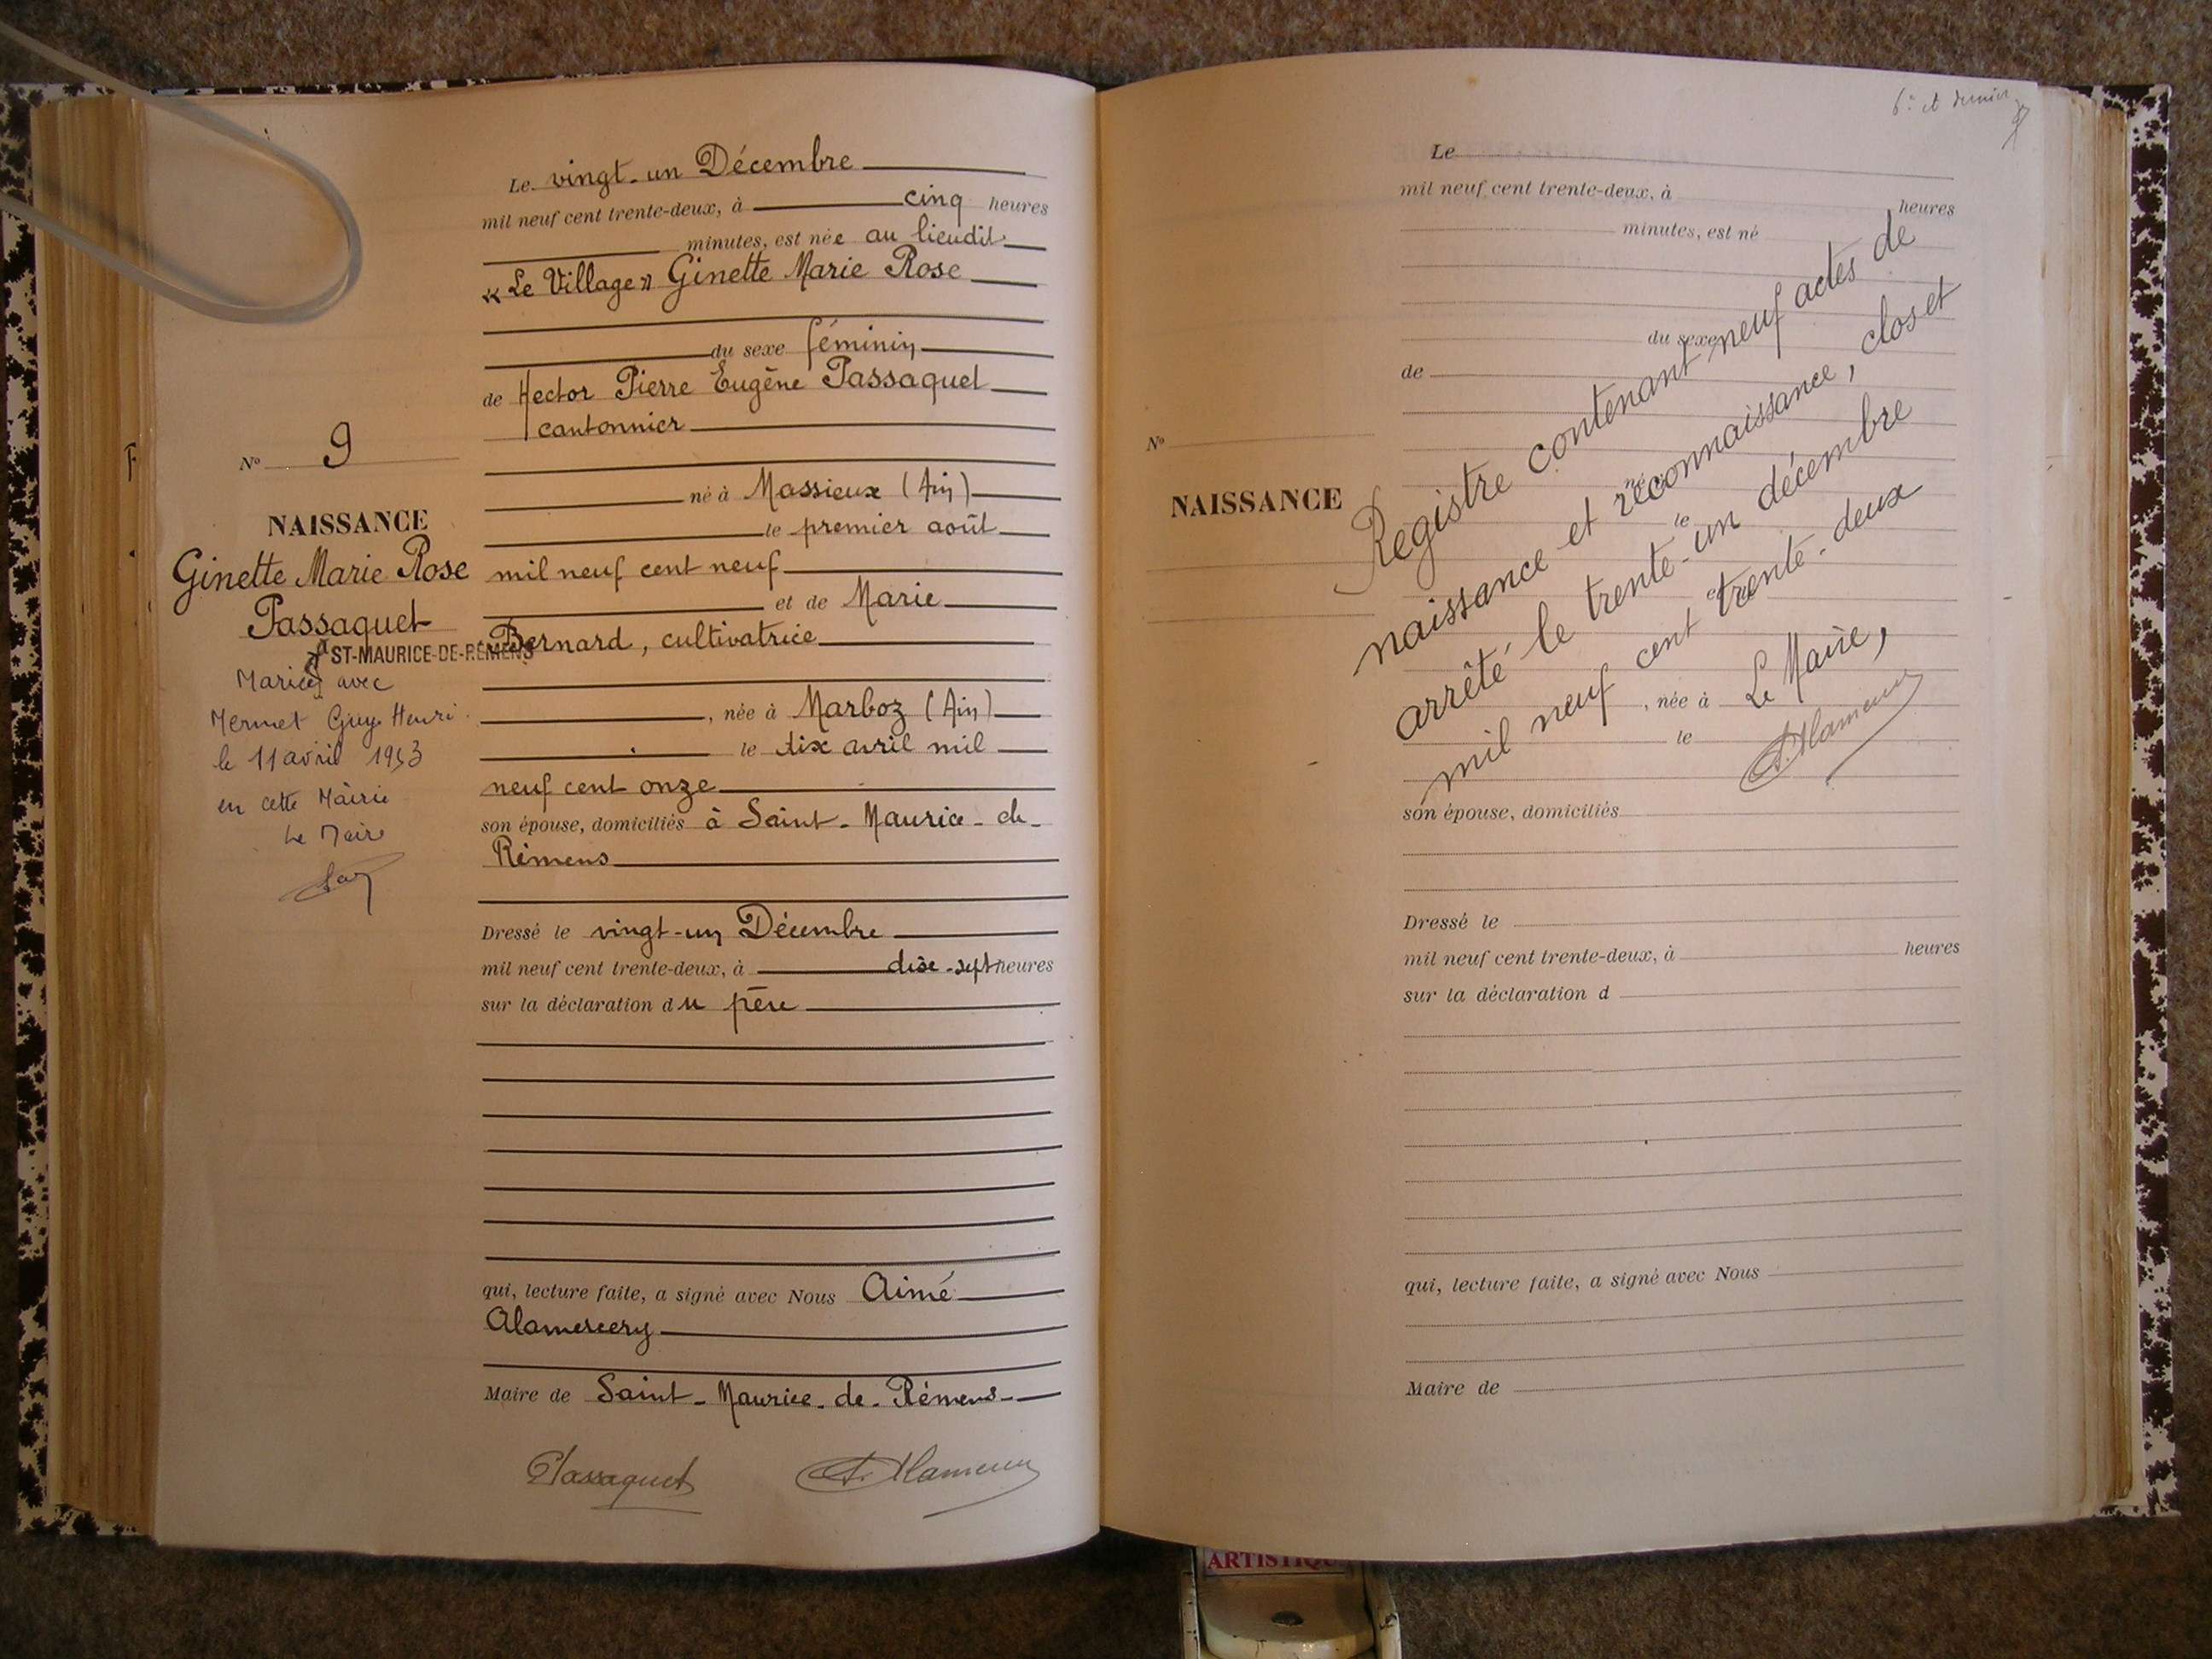 Le vingt-un Décembre
mil neuf cent trente-deux, à cinq heures
minutes, est née au lieudit
« Le Village » Ginette Marie Rose
du sexe féminin
de Hector Pierre Eugène Passaquet
cantonnier
né à Massieux (Ain)
le premier août
mil neuf cent neuf
et de Marie
Bernard, cultivatrice
, née à Marboz (Ain)
le dix avril mil
neuf cent onze
son épouse, domiciliés à Saint-Maurice-de-
Rémens
Dressé le vingt-un Décembre
mil neuf cent trente-deux, à dix-sept heures
sur la déclaration du père
qui, lecture faite, a signé avec Nous Aimé
Alamercery
Maire de Saint-Maurice-de-Rémens
Passaquet
No 9
NAISSANCE
Ginette Marie Rose
Passaquet
à ST-MAURICE-DE-RÉMENS
Mariée avec
Mermet Guy Henri
le 11 avril 1953
en cette Mairie
Le Maire
6e et dernier
Le
mil neuf cent trente-deux, à heures
minutes, est né
du sexe
de
No
NAISSANCE
né à
le
et de
, née à
le
son épouse, domiciliés
Dressé le
mil neuf cent trente-deux, à heures
sur la déclaration d
qui, lecture faite, a signé avec Nous
Maire de
Registre contenant neuf actes de
naissance et reconnaissance, clos et
arrêté le trente-un décembre
mil neuf cent trente-deux
Le Maire,
ARTISTIQU